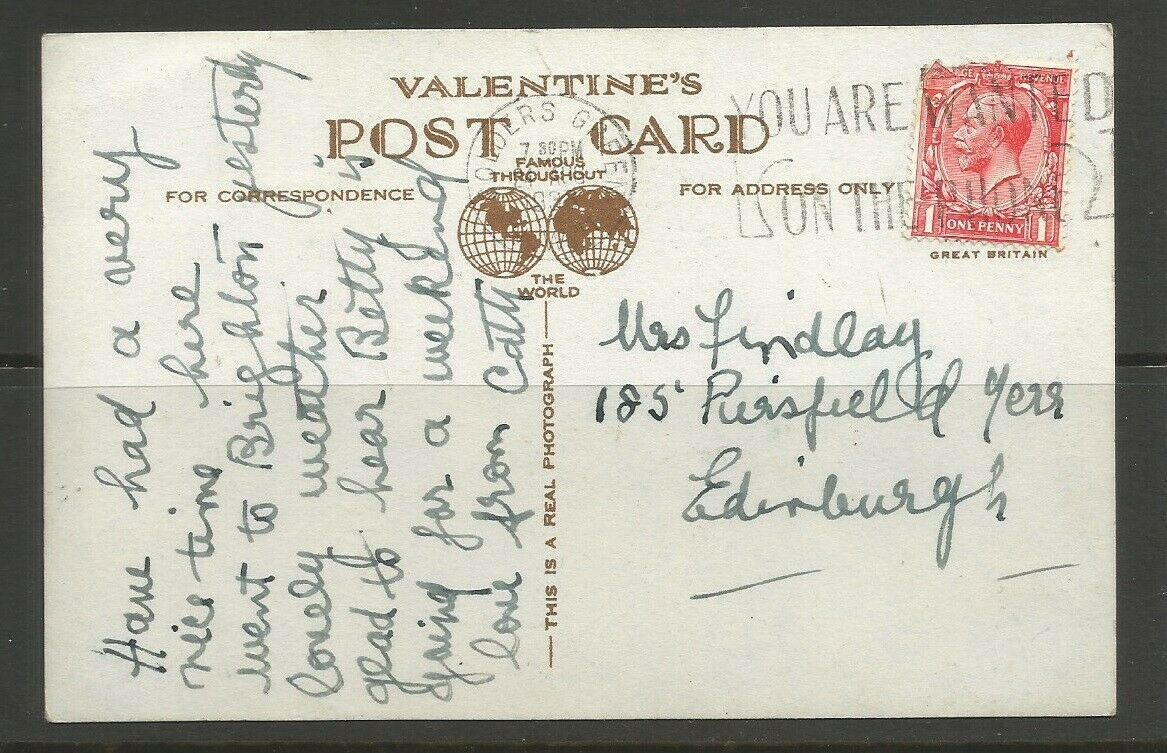 VALENTINE'S
POST CARD
FAMOUS
THROUGHOUT
THE
WORLD
FOR CORRESPONDENCE
FOR ADDRESS ONLY
GREAT BRITAIN
THIS IS A REAL PHOTOGRAPH
Have had a very
nice time here
went to Brighton yesterdy
lovely weather
glad to hear Betty is
going for a weekend
love from Cath
Mrs Findlay
185 Terr
Edinburgh
GOLDERS GREEN
7 30 PM
YOU ARE WANTED
ON THE PHONE
POSTAGE REVENUE
1 ONE PENNY 1